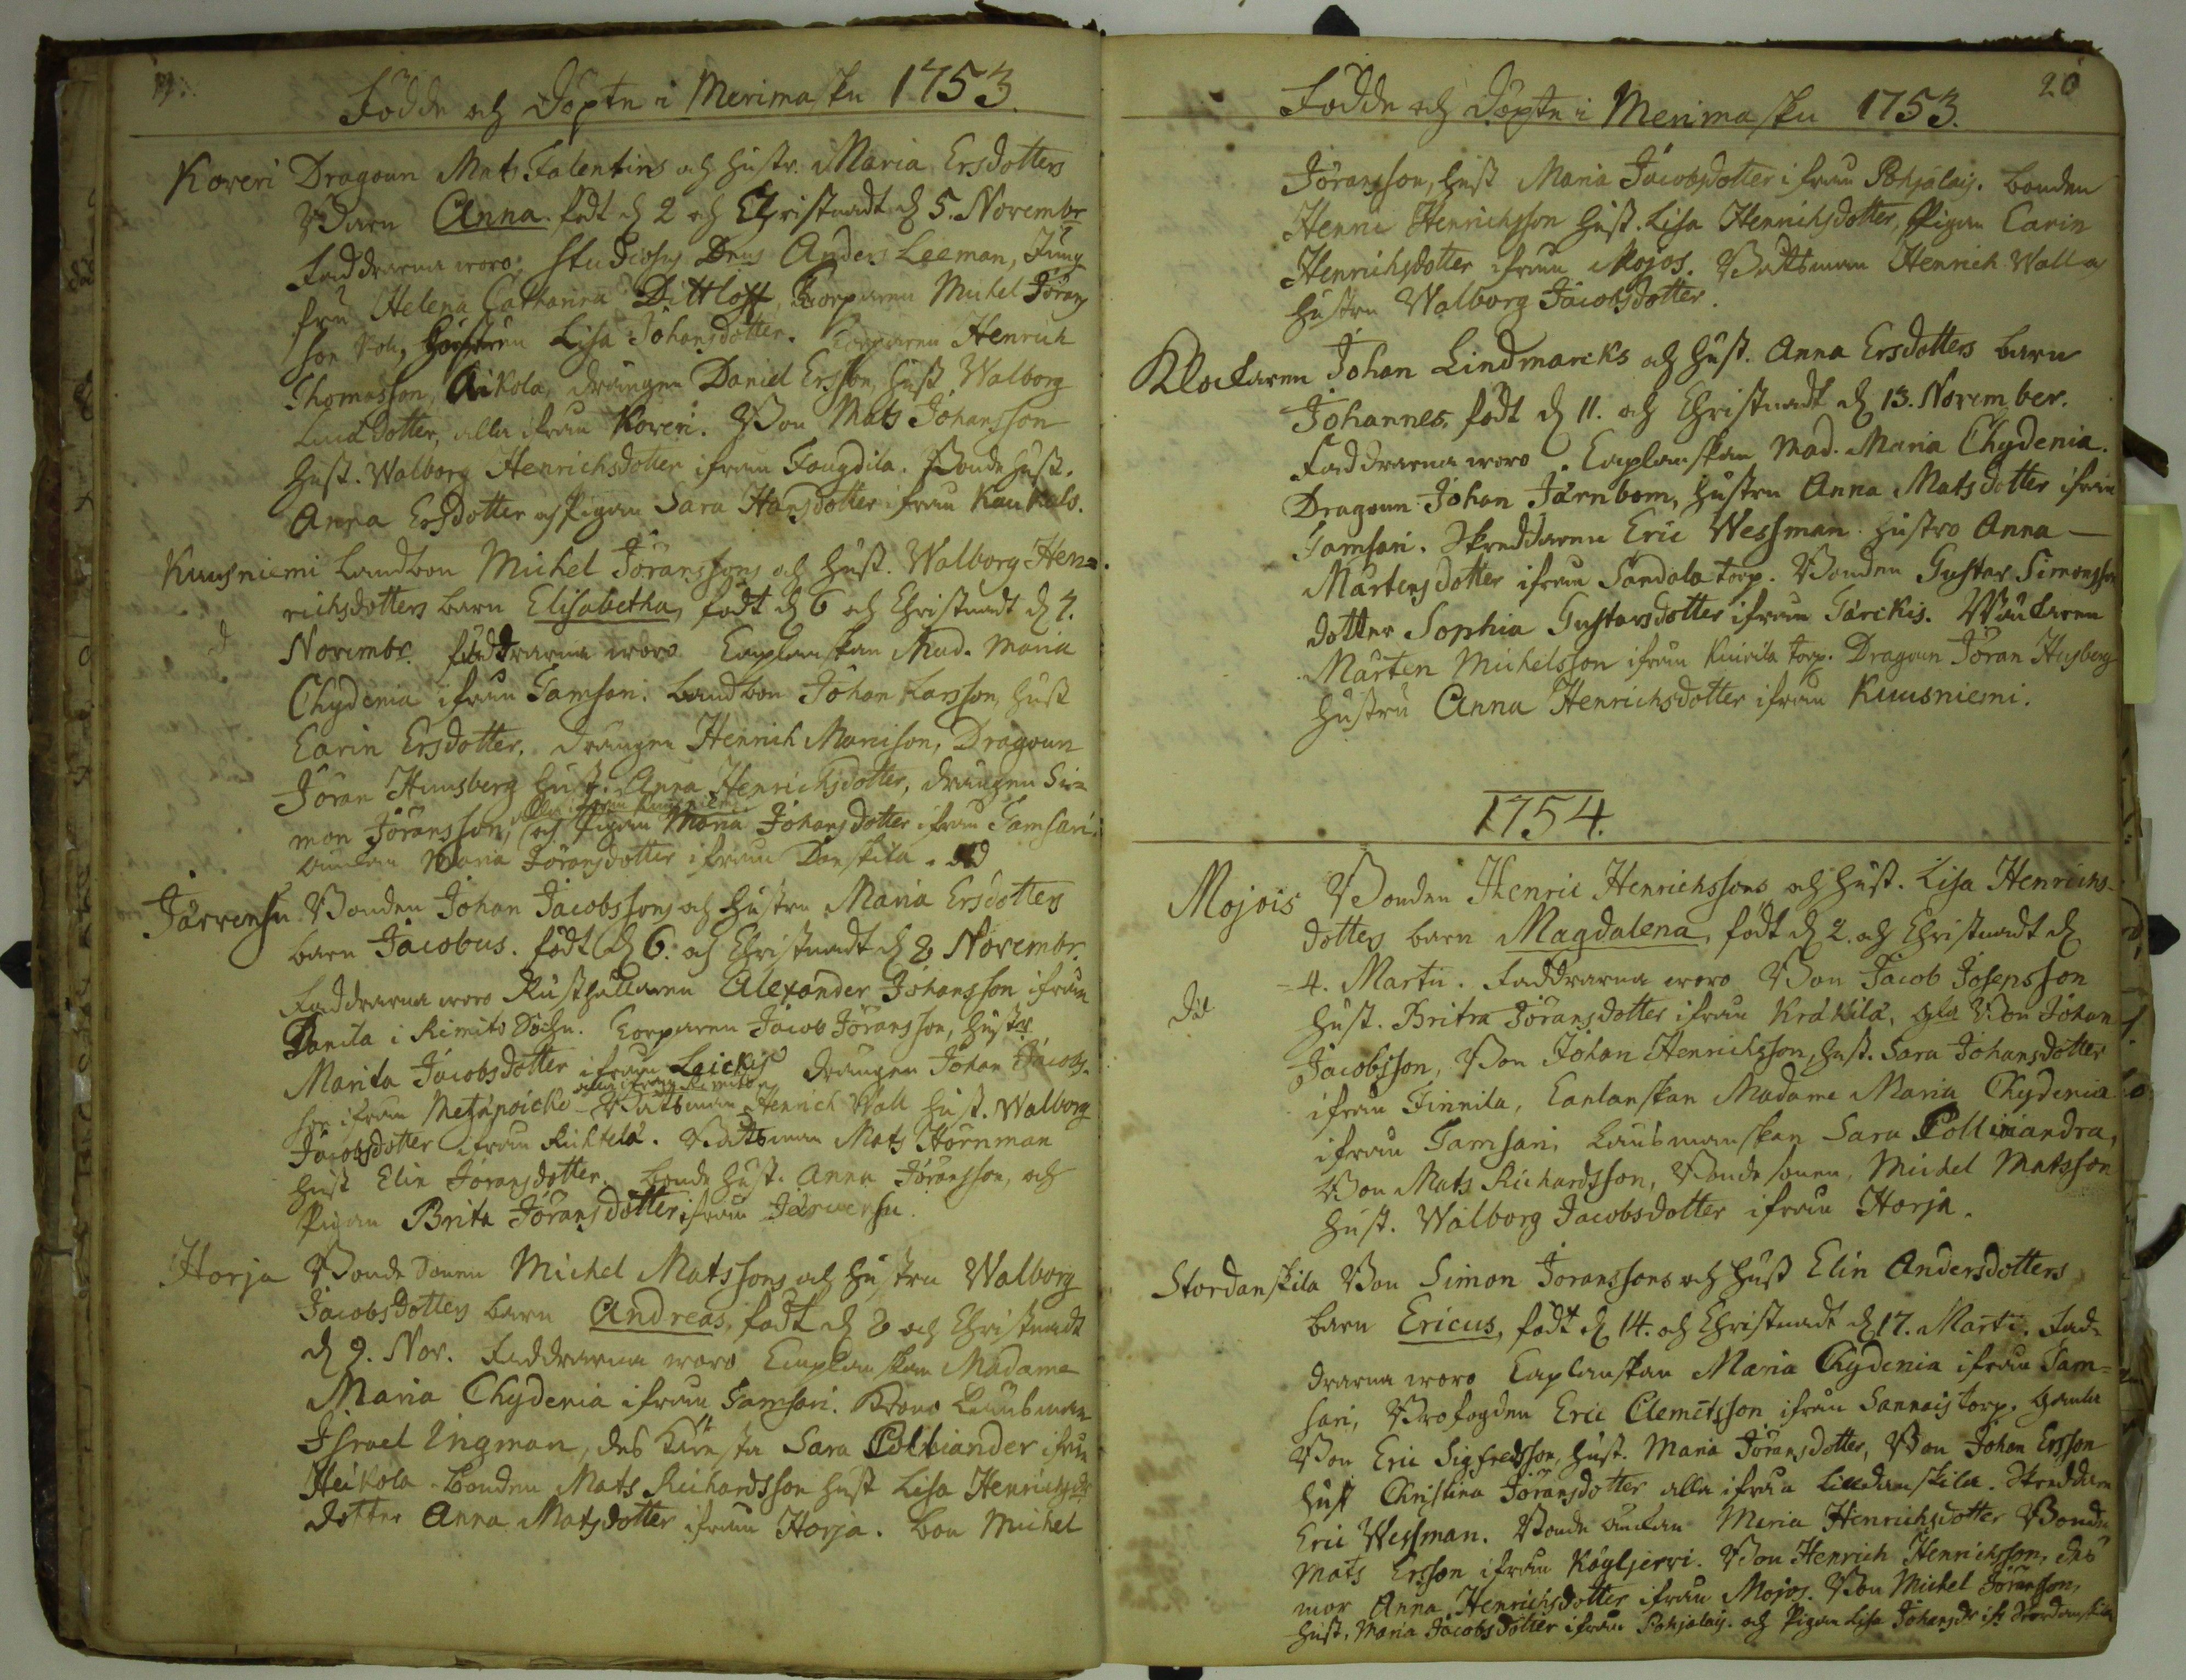 Födde och Döpte i Merimasku 1753.
Koveri Dragoun Mats Falentins och Hustr. Maria Ersdotters
Barn Anna. född d. 2 och Christnadt d. 5. Novembr
Faddrarna woro: Studiosus Dnus Anders Leeman, Jung
fru Helena Catharina Dittloff, Torparen Michel Jörans
son Hustrun Lisa Johansdotter. Torparen Henrich
Thomasson, Aikola, drängen Daniel Ersson, Hust. Walborg
dotter, alla ifrån Koveri. Bon Mats Johansson
Hust. Walborg Henrichsdotter ifrån Fougdila. Bonde Hust.
Anna Ersdotter och Pigan Sara Hansdotter ifrån
Kuusniemi Landbon Michel Jöranssons och Hust. Walborg Hen=
richsdotters barn Elisabetha, födt d. 6 och Christnadt d. 7.
Novembr. faddrarna woro Caplanskan Mad. Maria
Chydenia ifrån Tamsari. Landbon Johan Larsson, Hust
Carin Ersdotter. drängen Henrich Marcison, Dragoun
Jöran Huusberg Hust. Anna Henrichsdotter, drängen Si=
alla ifrån Kuusniemi
mon Jöransson, och Pigan Maria Johansdotter ifrån Tamsari.
Maria Jöransdotter ifrån Danskila.
Järvensu Bonden Johan Jacobssons och Hustru Maria Ersdotters
barn Jacobus. födt d. 6. och Christnadt d. 8 Novembr.
Faddrarna woro Rusthållaren Alexander Johansson ifrån
i Rimito Sochn. Torparen Jacob Jöransson, Hustr
Marita Jacobsdotter ifrån Laickis drängen Johan Jacobs-
son ifrån Båtsman Henrich Wall Hust. Walborg
Jacobsdotter ifrån Båtsman Mats Hörnman
Hust Elin Jöransdotter. bonde Hust. Anna Jöransson, och
Pigan Brita Jöransdotter ifrån Järvensu.
Horja Bonde Sonen Michel Matssons och Hustru Walborg
Jacobsdotters barn Andreas, födt d. 8 och Christnadt
d. 9. Nov. Faddrarna woro Caplanskan Madame
Maria Chydenia ifrån Tamsari. Krono Länsman
Israel Ingman, des Kiäresta Sara Collliander ifrån
Heikola. bonden Mats Richardsson Hust Lisa Henrichsdr
dotter Anna Matsdotter ifrån Horja. bon Michel
20
Födde och Döpte i Merimasku 1753.
Jöransson, Hust Maria Jacobsdotter ifrån Pohjalais. bonden
Henric Henrichsson Hust. Lisa Henrichsdotter, Pigan Carin
Henrichsdotter ifrån Mojos. Båtsman Henrich Walls
Hustru Walborg Jacobsdotter.
Klockaren Johan Lindmarcks och Hust. Anna Ersdotters barn
Johannes, födt d. 11. och Christnadt d. 13. November.
Faddrarna woro. Caplanskan Mad. Maria Chydenia.
Dragoun Johan Järnbom, Hustru Anna Matsdotter ifrån
Tamsari. Skreddaren Eric Wessman Hustro Anna
Mårtensdotter ifrån Sandala torp. Bonden Gustav Simonsson
dotter Sophia Gustavsdotter ifrån Tärckis.
Mårten Michelsson ifrån torp. Dragoun Jöran Husberg
Hustru Anna Henrichsdotter ifrån Kuusniemi.
1754.
Mojois Bonden Henric Henrichssons och Hust. Lisa Henrichs-
dotters barn Magdalena, födt d. 2. och Christnadt d.
4. Martii. Faddrarna woro Bon Jacob Josepsson
Hust. Britra Jöransdotter ifrån Krakila, Bon Johan
Jacobsson, Bon Johan Henrichsson, Hust. Sara Johansdotter
ifrån Finnila, Caplanskan Madame Maria Chydenia
ifrån Tamsari, Länsmanskan Sara Colliandra,
Bon Mats Richardsson, Bonde sonen, Michel Matsson
Hust. Walborg Jacobsdotter ifrån Horja.
Stordanskila Bon Simon Joranssons och Hust Elin Andersdotters
barn Ericus, födt d. 14. och Christnadt d. 17. Martii. Fad-
drarna woro Caplanskan Maria Chydenia ifrån Tam=
sari, Brofogden Eric Clemetsson ifrån Sannais torp. gamla
Bon Eric Sigfredsson, Hust. Maria Jöransdotter, Bon Johan Ersson
Hust Christina Jöransdotter alla ifrån Lilldanskila. Skreddarn
Eric Wessman. Bonde Maria Henrichsdotter Bonde
Mats Ersson ifrån Köyljerri. Bon Henrich Henrichsson, des
mor Anna Henrichsdotter ifrån Mojos. Bon Michel Jöransson,
Hust. Maria Jacobsdotter ifrån Pohjalais. och Pigan Lisa Johansdr ifr Stordanskila